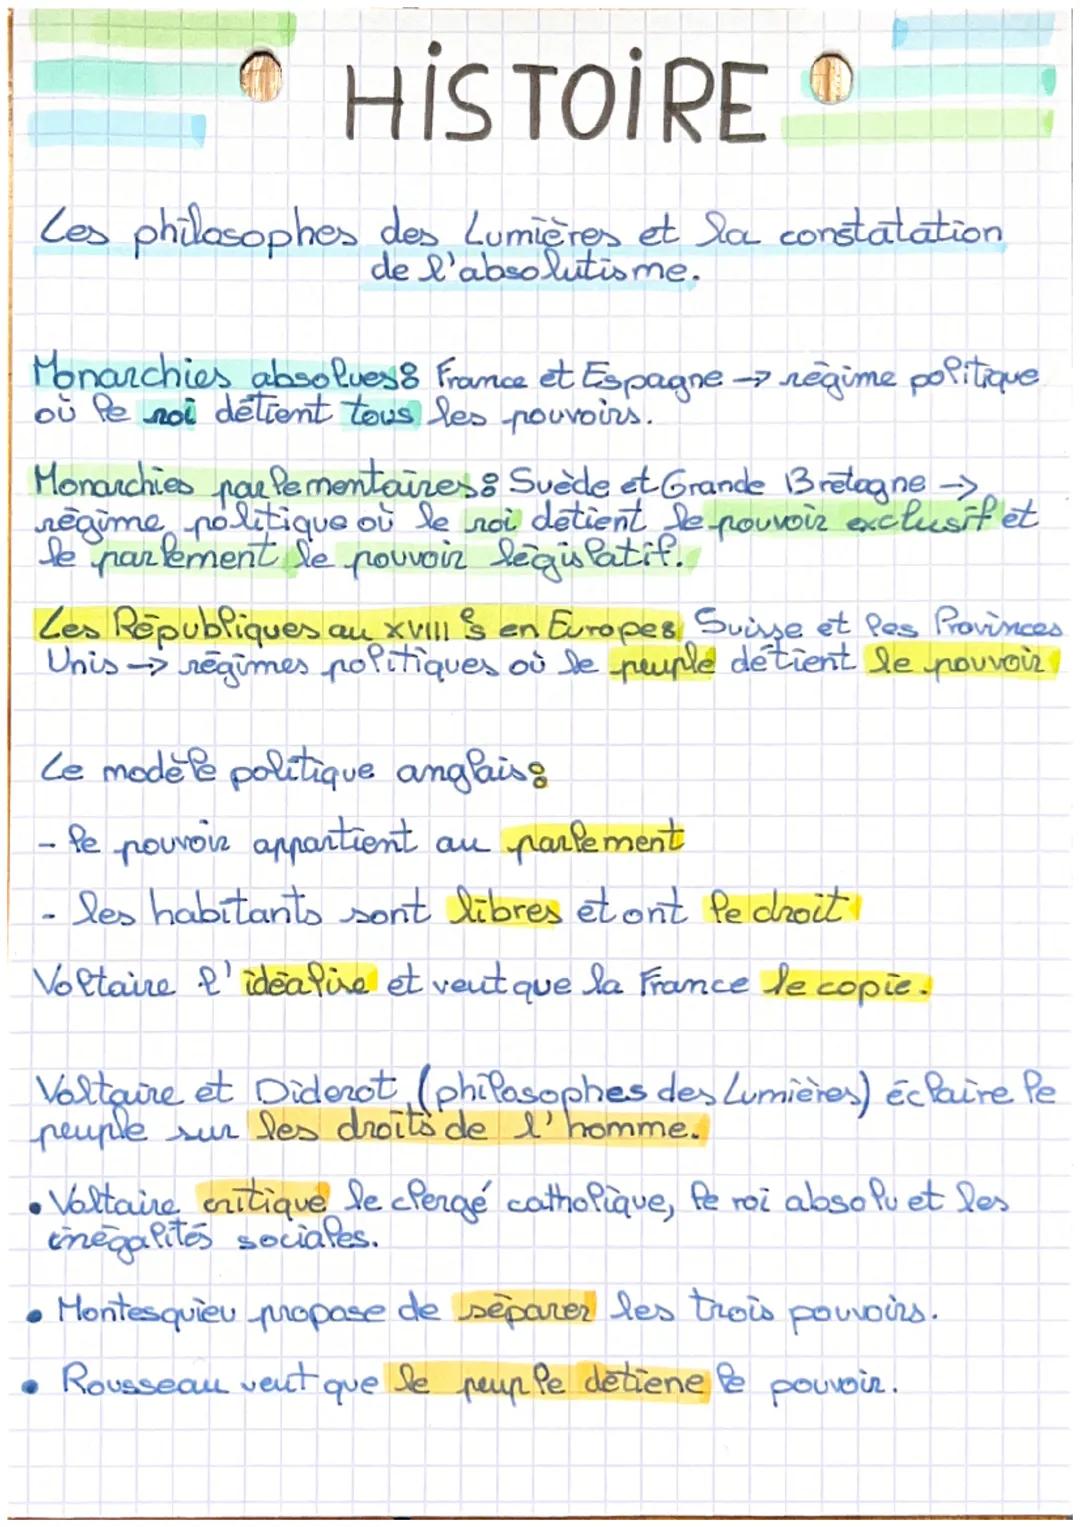 HiSTOiRE
Les philosophes des Lumières et la constatation
de l'absolutisme.
Monarchies absolues: France et Espagne → régime politique
où le roi détient tous les pouvoirs.
Monarchies parlementaires: Suède et Grande Bretagne →
régime politique où le roi détient le pouvoir exclusif et
le parlement le pouvoir législatif.
Les Républiques au XVIII es en Europe: Suisse et les Provinces
Unis → régimes politiques où le peuple détient le pouvoir
Le modèle politique anglais:
- le pouvoir appartient au parlement
- les habitants sont libres et ont le droit
Voltaire l'idéalise et veut que la France le copie.
Voltaire et Diderot (philosophes des Lumières) éclaire le
peuple sur les droits de l'homme.
• Voltaire critique le clergé catholique, le roi absolu et les
inégalités sociales.
• Montesquieu propose de séparer les trois pouvoirs.
• Rousseau veut que le peuple détiene le pouvoir.